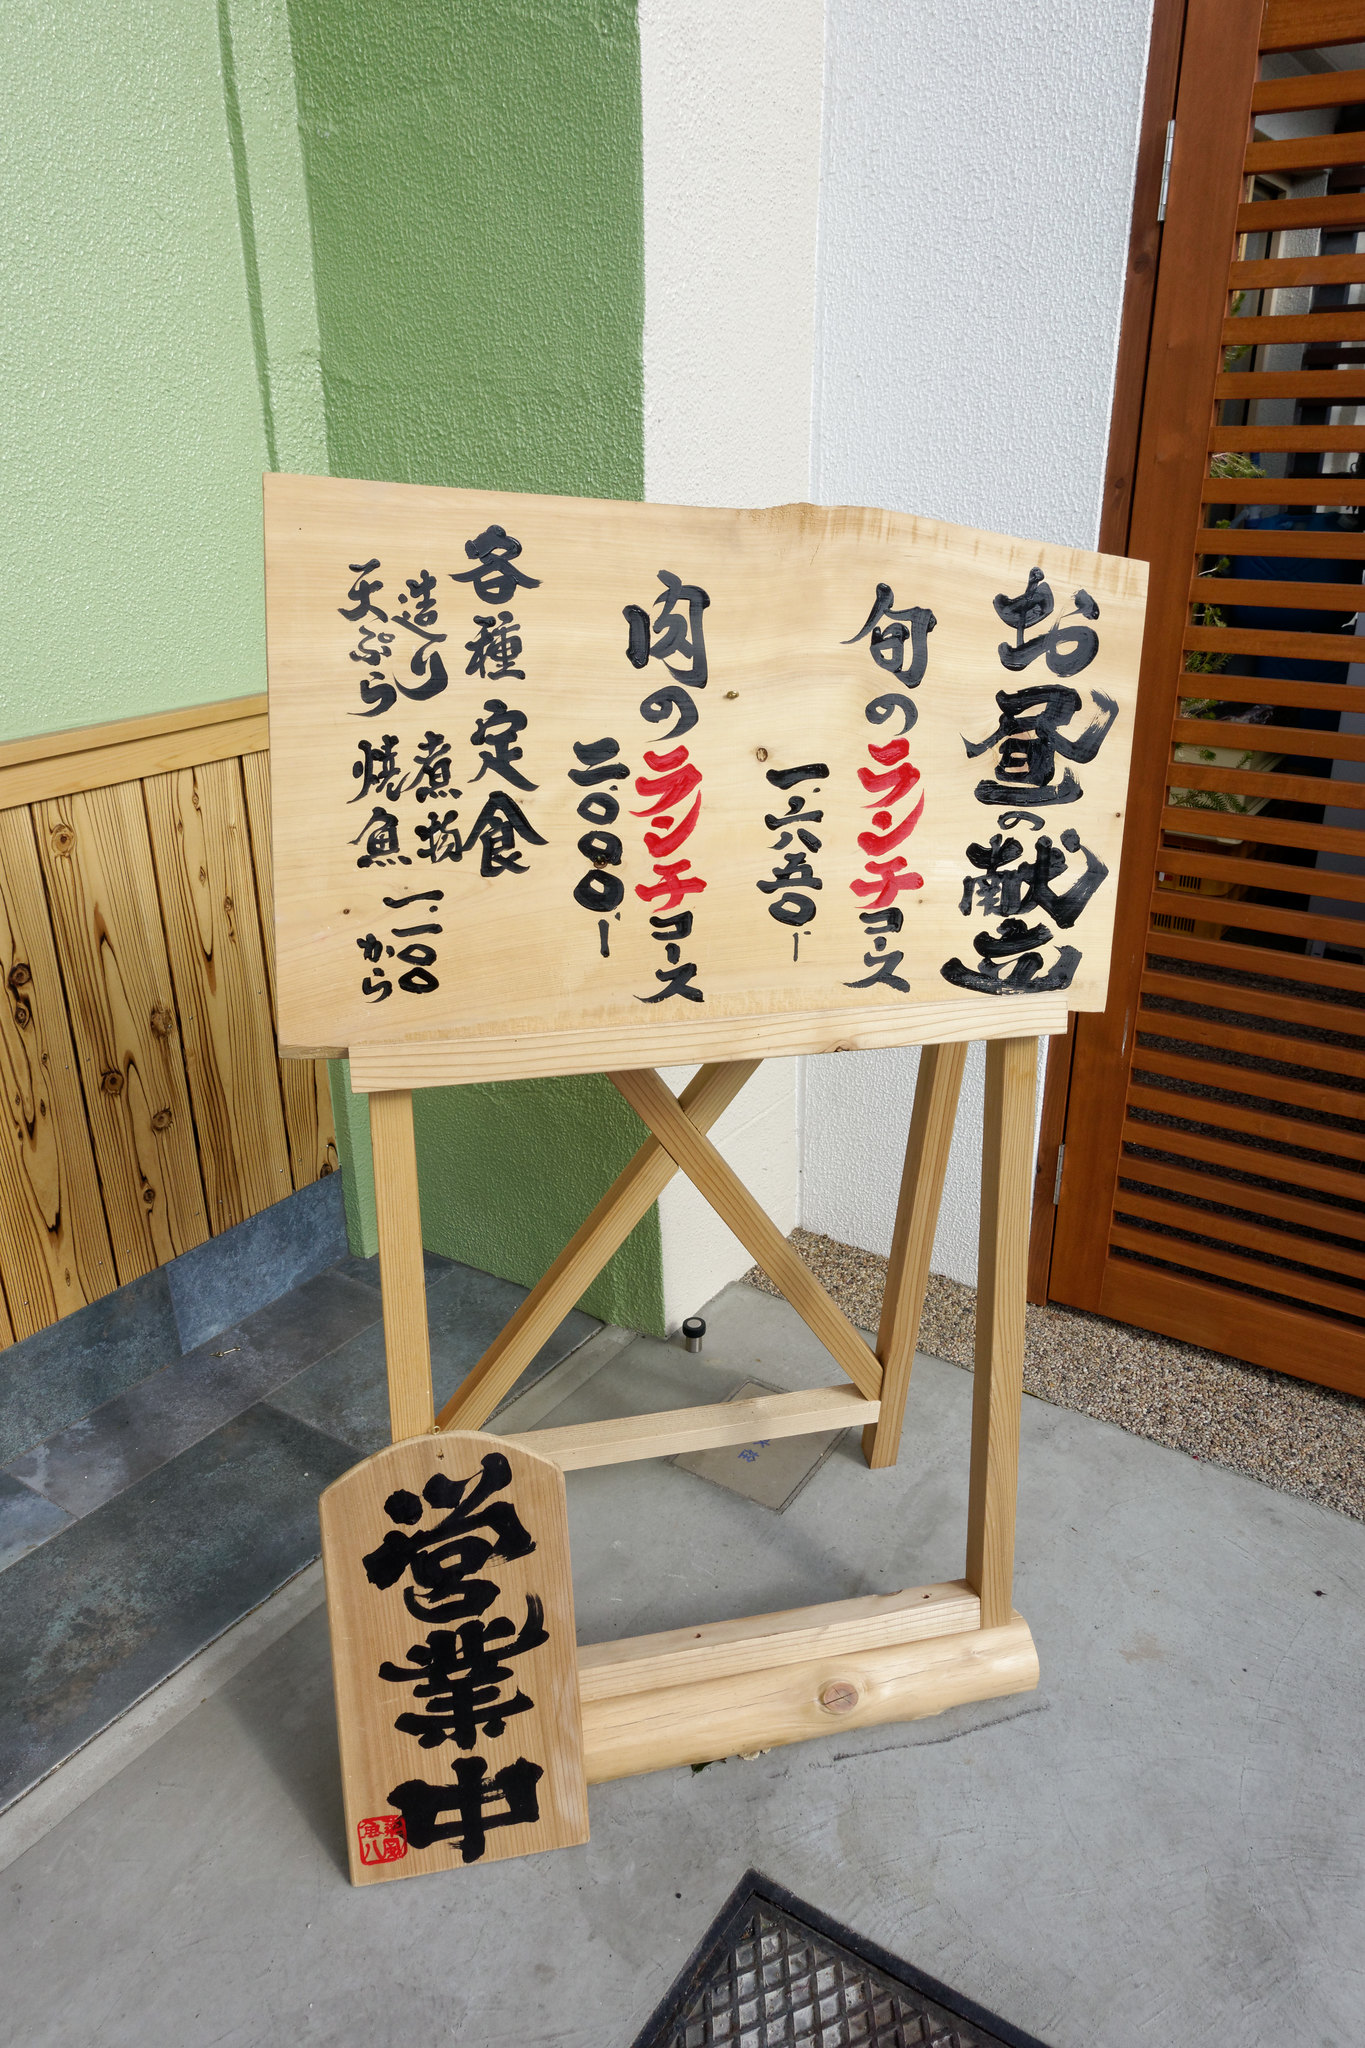 お昼の献立
旬のランチコース
一.六五〇-
肉のランチコース
二.〇〇〇-
各種定食
造り 煮物 一.一〇〇
天ぷら 焼魚 から
営業中
魚八
水栓